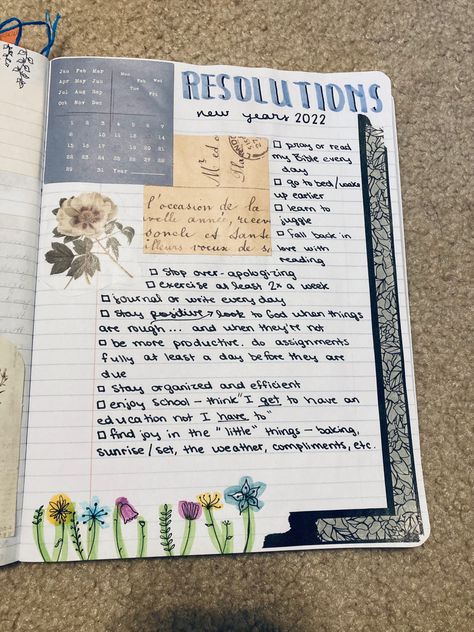 Jan Feb Mar
Apr May Jun
Jul Aug Sep
Oct Nov Dec
Mon Feb Wed
Tue Fri
1 2 3 4
8 11
15 16 17 18
22 23 24 25
29 31 Year
RESOLUTIONS
new years 2022
l'occasion de la
velle année, recev
soncle et Sante
illeurs voeux de
□ pray or read
my Bible every
day
□ go to bed/wake
up earlier
□ learn to
juggle
□ fall back in
love with
reading
□ Stop over-apologizing
□ exercise as least 2x a week
□ journal or write every day
□ Stay positive → look to God when things
are rough... and when they're not
□ be more productive. do assignments
fully at least a day before they are
due
□ Stay organized and efficient
□ enjoy School - think "I get to have an
education not I have to"
□ find joy in the "little" things - baking,
sunrise/set, the weather, compliments, etc.